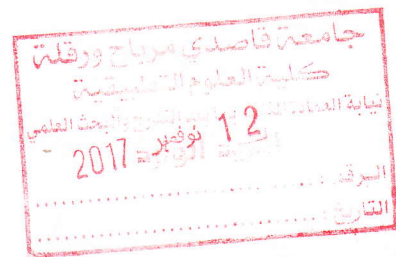 جامعة قاصدي مرباح ورقلة
كلية العلوم التطبيقية
نيابة العمادة التدرج والبحث العلمي
12 نوفمبر 2017
البريد الوارد
الرقم :
التاريخ :